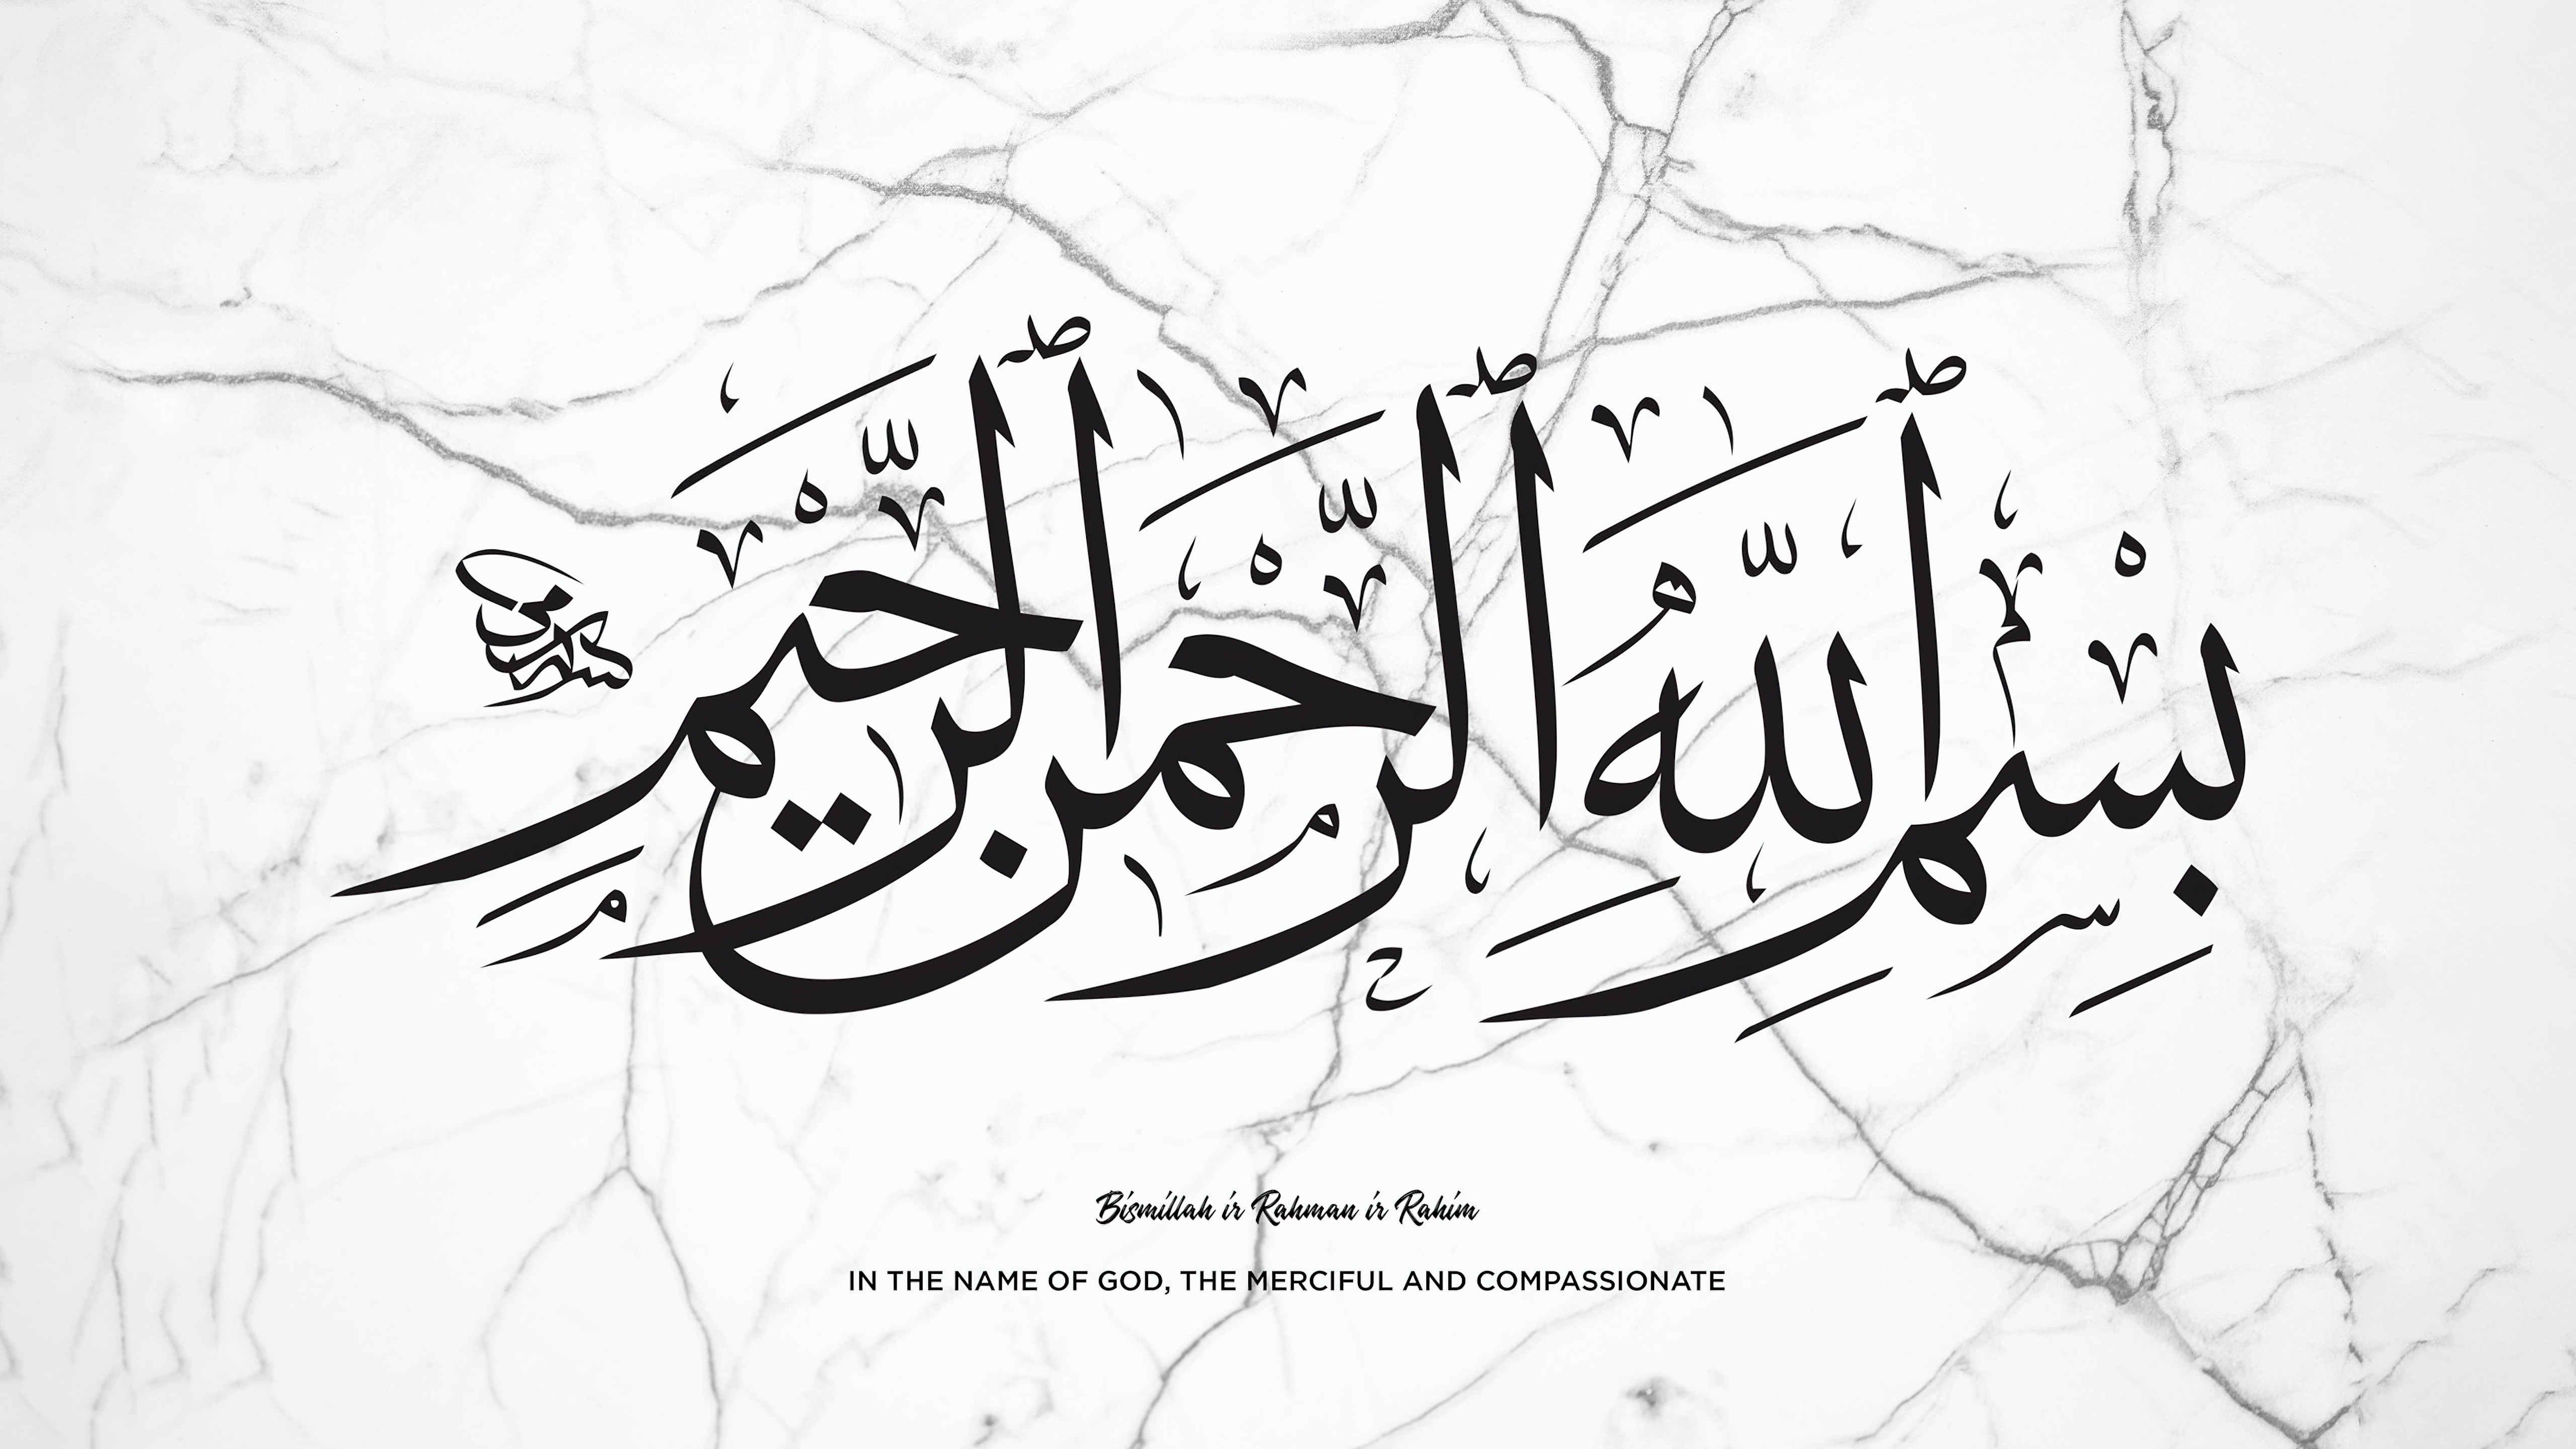 بِسْمِ ٱللَّهِ ٱلرَّحْمَنِ ٱلرَّحِيمِ
Bismillah ir Rahman ir Rahim
IN THE NAME OF GOD, THE MERCIFUL AND COMPASSIONATE